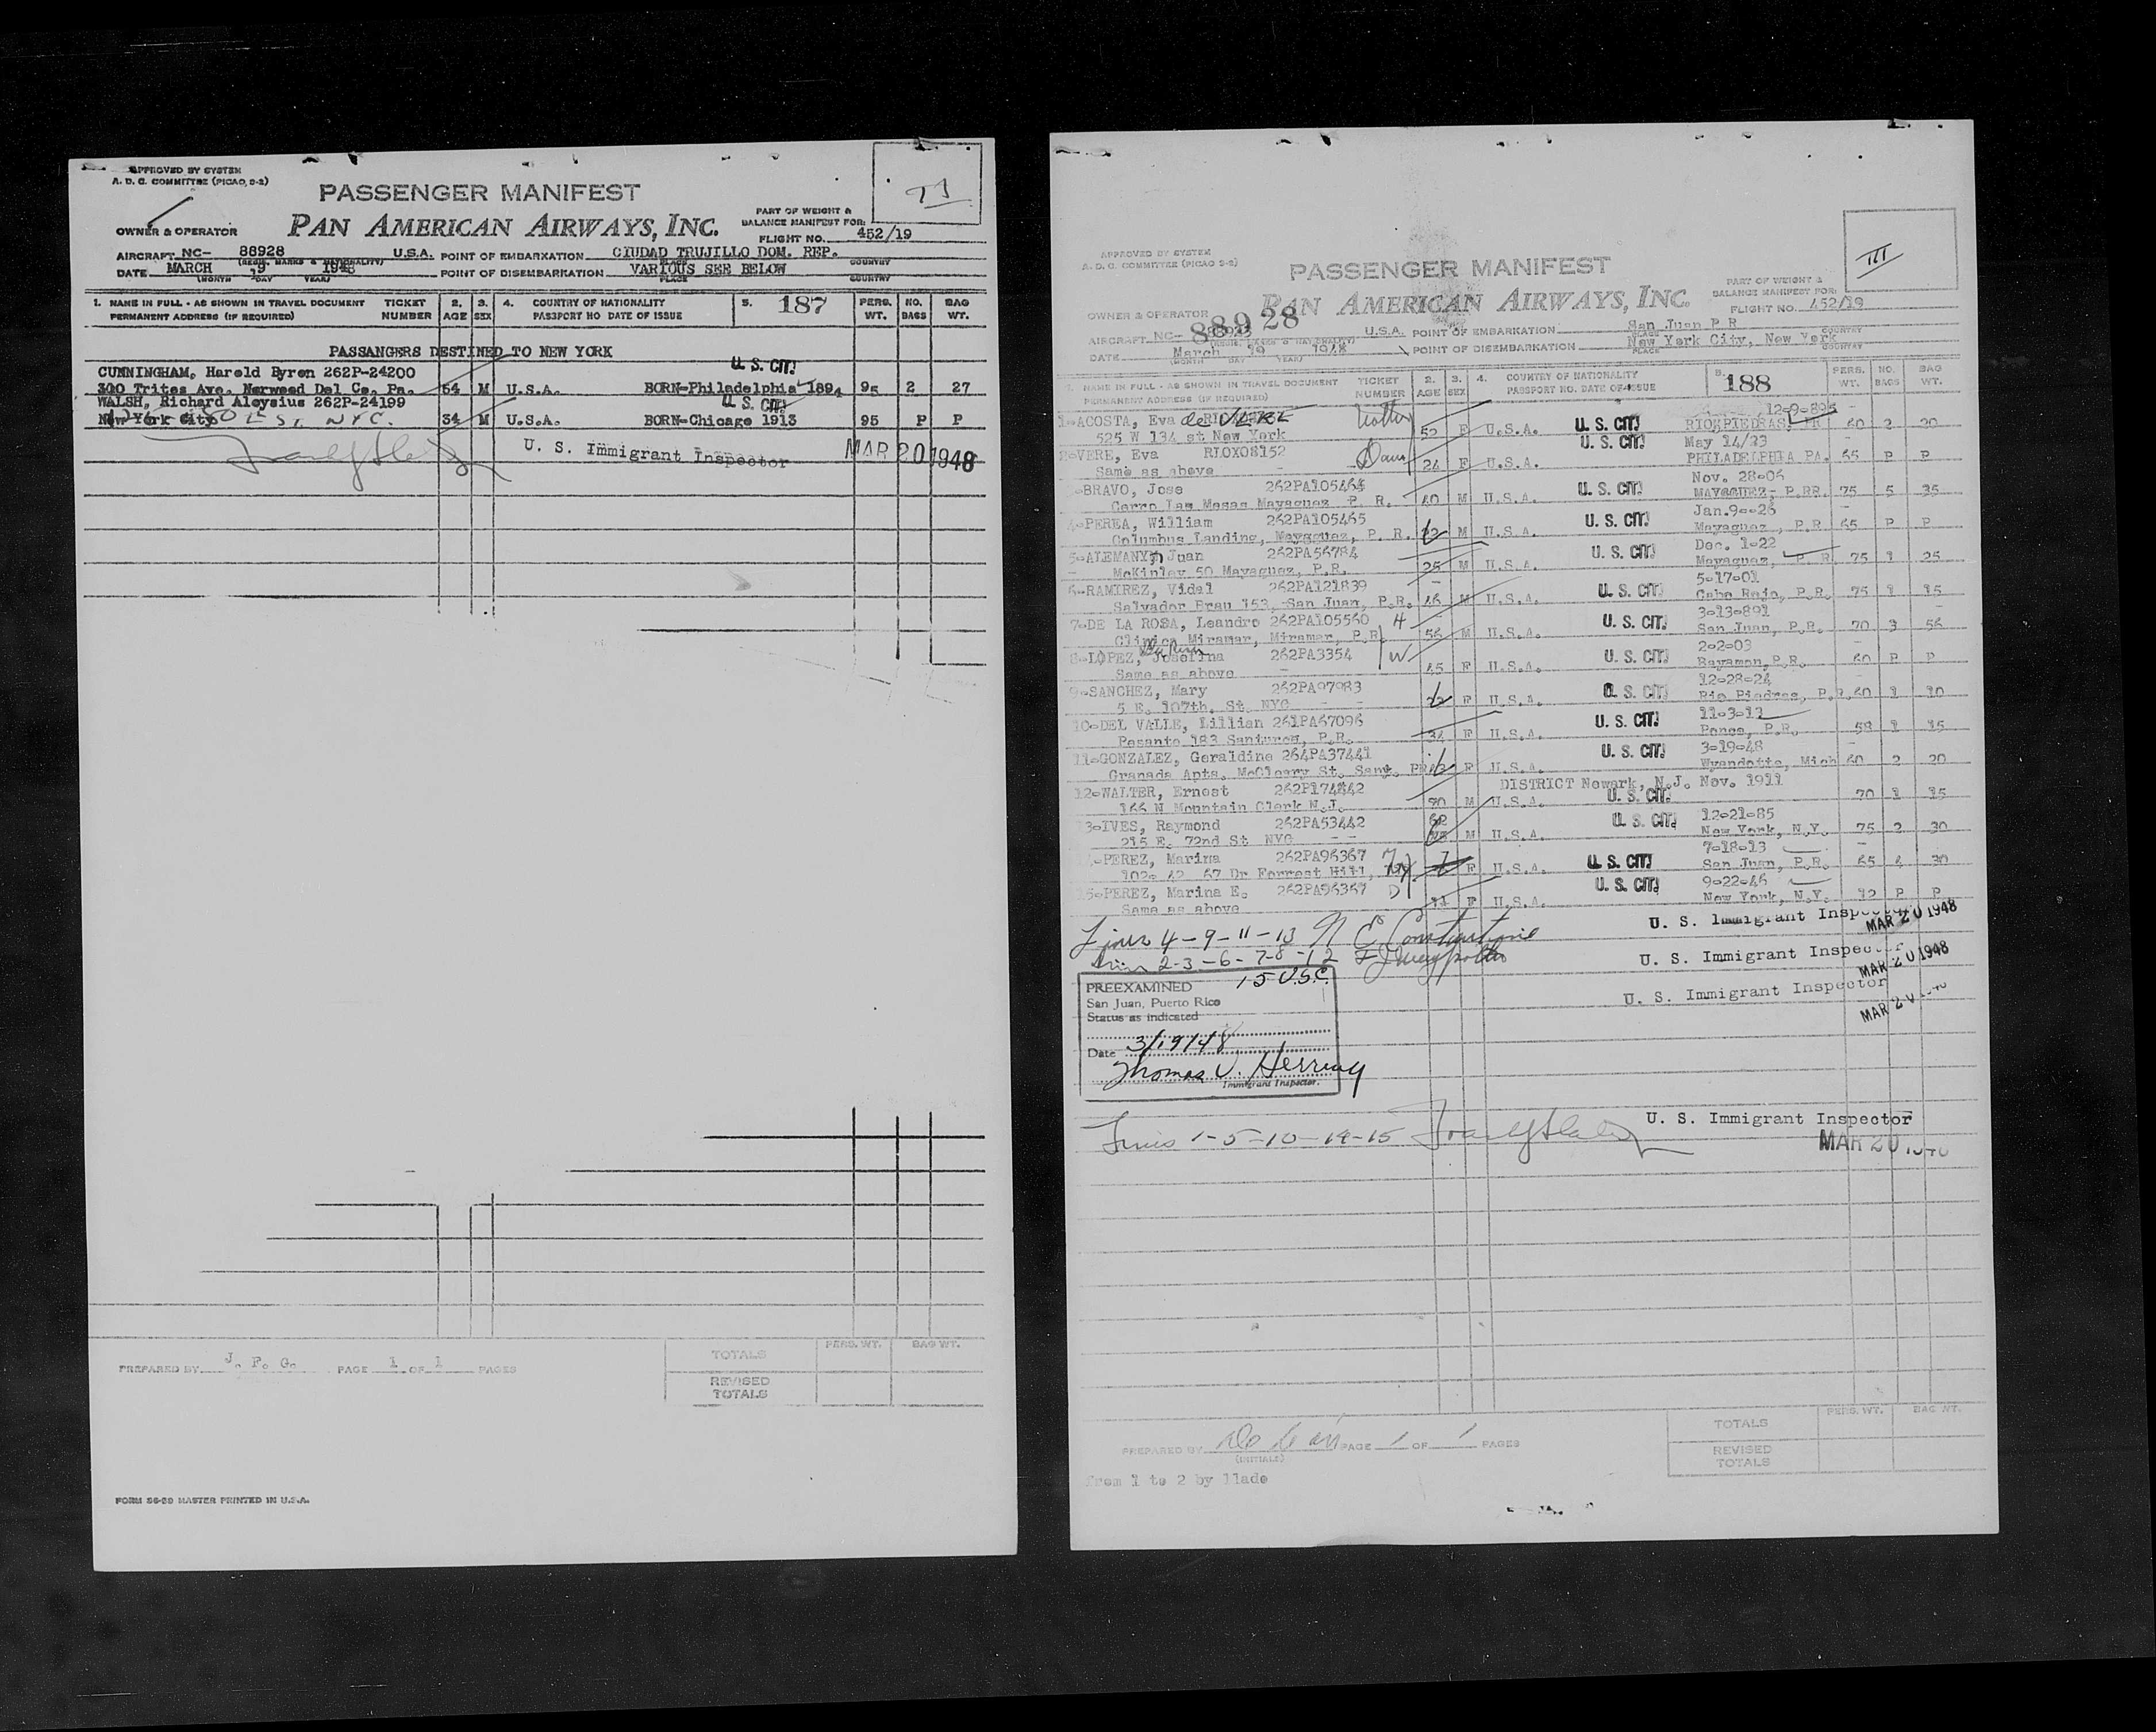 APPROVED BY SYSTEM
A. D. C. COMMITTEE (PICAO, S-2)
TJ
PASSENGER MANIFEST
OWNER & OPERATOR PAN AMERICAN AIRWAYS, INC.
PART OF WEIGHT &
BALANCE MANIFEST FOR:
FLIGHT NO. 452/19
AIRCRAFT NC- 88928 U.S.A. POINT OF EMBARKATION CIUDAD TRUJILLO DOM. REP.
(REGIS. MARKS & NATIONALITY) PLACE COUNTRY
DATE MARCH 19 1948 POINT OF DISEMBARKATION VARIOUS SEE BELOW
(MONTH DAY YEAR) PLACE COUNTRY
1. NAME IN FULL - AS SHOWN IN TRAVEL DOCUMENT TICKET 2. 3. 4. COUNTRY OF NATIONALITY 5. 187 PERS. NO. BAG
PERMANENT ADDRESS (IF REQUIRED) NUMBER AGE SEX PASSPORT NO DATE OF ISSUE WT. BAGS WT.
PASSANGERS DESTINED TO NEW YORK
U. S. CIT.
CUNNINGHAM, Harold Byron 262P-24200
300 Trites Ave. Norwood Del Co. Pa. 54 M U.S.A. BORN-Philadelphia 1894 95 2 27
WALSH, Richard Aloysius 262P-24199 U. S. CIT.
New York City NYC. 34 M U.S.A. BORN-Chicago 1913 95 P P
U. S. Immigrant Inspector MAR 20 1948
PREPARED BY J. F. G. PAGE 1 OF 1 PAGES
TOTALS PERS. WT. BAG WT.
REVISED
TOTALS
FORM 36-89 MASTER PRINTED IN U.S.A.
APPROVED BY SYSTEM
A. D. C. COMMITTEE (PICAO S-2)
III
PASSENGER MANIFEST
OWNER & OPERATOR PAN AMERICAN AIRWAYS, INC.
PART OF WEIGHT &
BALANCE MANIFEST FOR:
FLIGHT NO. 452/19
AIRCRAFT NC- 88928 U.S.A. POINT OF EMBARKATION San Juan P.R.
(REGIS. MARKS & NATIONALITY) PLACE COUNTRY
DATE March 19 1948 POINT OF DISEMBARKATION New York City, New York
(MONTH DAY YEAR) PLACE COUNTRY
1. NAME IN FULL - AS SHOWN IN TRAVEL DOCUMENT TICKET 2. 3. 4. COUNTRY OF NATIONALITY 5. 188 PERS. NO. BAG
PERMANENT ADDRESS (IF REQUIRED) NUMBER AGE SEX PASSPORT NO. DATE OF ISSUE WT. BAGS WT.
1-ACOSTA, Eva de Mother U. S. CIT. 12-9-895
525 W 134 st New York 52 F U.S.A. RIOKPIEDRAS, PR 60 2 20
2-VERE, Eva RIOX08152 Dau U. S. CIT. May 14/23
Same as above 24 F U.S.A. PHILADELPHIA PA. 65 P P
-BRAVO, Jose 262PA105464 U. S. CIT. Nov. 28-06
Cerro Las Mesas Mayaguez P. R. 40 M U.S.A. MAYAGUEZ- P.RR. 75 5 35
4-PEREA, William 262PA105465 U. S. CIT. Jan.9--26
Columbus Landing, Mayaguez, P. R. 22 M U.S.A. Mayaguez, P.R 65 P P
5-ALEMANY, Juan 262PA56784 U. S. CIT. Dec. 1-22
McKinley 50 Mayaguez, P.R. 25 M U.S.A. Mayaguez, P. R. 75 1 25
6-RAMIREZ, Vidal 262PA121839 U. S. CIT. 5-17-01
Salvador Brau 153, San Juan, P.R. 46 M U.S.A. Cabo Rojo, P.R. 75 1 15
7-DE LA ROSA, Leandro 262PA105560 H U. S. CIT. 3-13-891
Clinica Miramar, Miramar, P.R. 56 M U.S.A. San Juan, P.R. 70 3 56
8-LOPEZ, Josefina 262PA3354 W U. S. CIT. 2-2-03
Same as above 45 F U.S.A. Bayamon, P.R. 60 P P
9-SANCHEZ, Mary 262PA97983 U. S. CIT. 12-28-24
5 E. 107th. St. NYC 23 F U.S.A. Rio Piedras, P.R. 60 1 10
10-DEL VALLE, Lillian 261PA67096 U. S. CIT. 11-3-13
Pesante 183 Santurce, P.R. 34 F U.S.A. Ponce, P.R. 58 1 15
11-GONZALEZ, Geraldine 264PA37441 U. S. CIT. 3-19-48
Granada Apts. McCleary St. Sant. PR F U.S.A. Wyandotte, Mich 60 2 20
12-WALTER, Ernest 262P174842 DISTRICT Newark, N.J. Nov. 1911
166 N Mountain Clark N.J. M U.S.A. U. S. CIT. 70 1 15
13-IVES, Raymond 262PA53442 62 U. S. CIT. 12-21-85
215 E. 72nd St NYC M U.S.A. New York, N.Y. 75 2 30
-PEREZ, Marina 262PA96367 U. S. CIT. 7-18-13
102- 42 67 Dr Forrest Hill, NY F U.S.A. San Juan, P.R. 65 4 30
15-PEREZ, Marina E. 262PA96367 D U. S. CIT. 9-22-46
Same as above F U.S.A. New York, N.Y. 12 P P
Lines 4-9-11-13 N E Constantine U. S. Immigrant Inspector MAR 20 1948
Lines 2-3-6-7-8-12 U. S. Immigrant Inspector MAR 20 1948
15 U.S.C.
PREEXAMINED
San Juan, Puerto Rico U. S. Immigrant Inspector MAR 20
Status as indicated
Date 3/19/48
Thomas V. Herring
Immigrant Inspector.
Lines 1-5-10-14-15 U. S. Immigrant Inspector
MAR 20
PREPARED BY PAGE 1 OF 1 PAGES
(INITIALS)
TOTALS PERS. WT. BAG WT.
REVISED
TOTALS
from 1 to 2 by llado